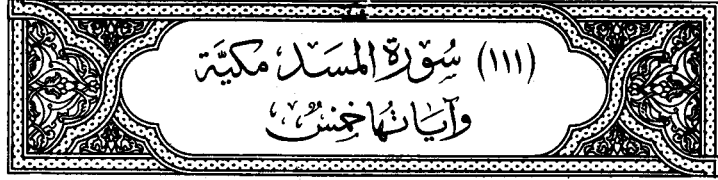 (١١١) سُورَةُ المَسَدِ مَكيَّة
وَآيَاتهَا خمسٌ